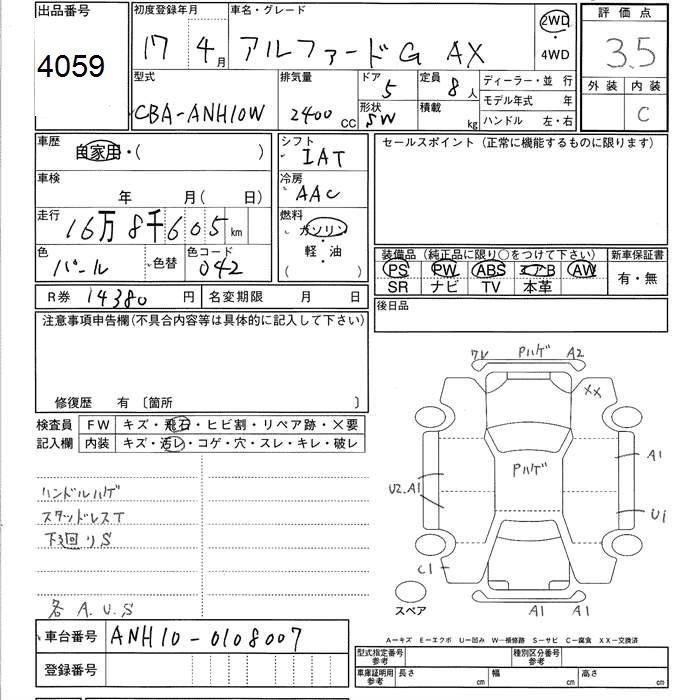 出品番号
4059
初度登録年月
17 4月
車名・グレード
アルファードG AX
2WD
・
4WD
評価点
3.5
外装 内装
C
型式
CBA-ANH10W
排気量
2400 CC
ドア
5
形状
SW
定員
8人
積載
kg
ディーラー・並 行
モデル年式 年
ハンドル 左・右
車歴
自家用・( )
シフト
IAT
セールスポイント (正常に機能するものに限ります)
車検
年 月( 日)
冷房
AAC
走行
16万8千605km
燃料
ガソリン
軽・油
( )
色
パール
色替
色コード
042
装備品 (純正品に限り○をつけて下さい)
新車保証書
PS PW ABS エアB AW
SR ナビ TV 本革
有・無
R券 14380 円
名変期限 月 日
後日品
注意事項申告欄(不具合内容等は具体的に記入して下さい)
修復歴 有 〔箇所 〕
検査員
記入欄
FW キズ・飛石・ヒビ割・リペア跡・×要
内装 キズ・汚レ・コゲ・穴・スレ・キレ・破レ
ハンドルハゲ
スタッドレスT
下廻りS
各 A.U.S
Pハゲ A2
XX
A1
Pハゲ
U2.A1
U1
C1
A1 A1
スペア
A－キズ E－エクボ U－凹み W－補修跡 S－サビ C－腐食 XX－交換済
車台番号
ANH10-0108007
登録番号
型式指定番号
参考
種別区分番号
参考
車庫証明用
参考
長さ cm
幅 cm
高さ cm